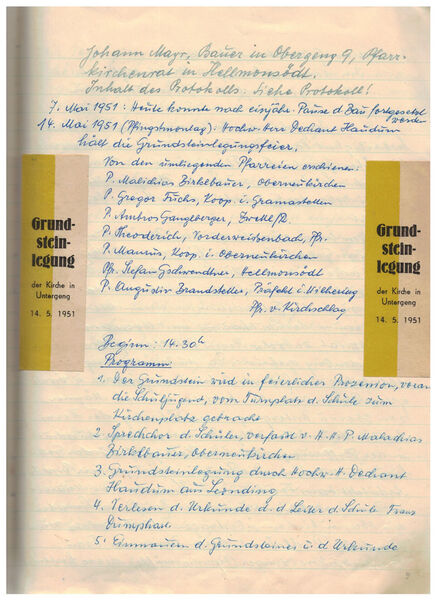 Johann Mayr, Bauer in Obergeng 9, Pfarr-
kirchenrat in Hellmonsödt.
Inhalt des Protokolls: Siehe Protokoll!
7. Mai 1951: Heute konnte nach einjähr. Pause d. Bau fortgesetzt
werden
14. Mai 1951 (Pfingstmontag): Hochw. Herr Dechant Haudum
hält die Grundsteinlegungsfeier.
Von den umliegenden Pfarreien erschienen:
P. Malachias Zirkelbauer, Oberneukirchen
P. Gregor Fuchs, Koop. i. Gramastetten
P. Ambros Ganglberger, Zwettl/R.
P. Theoderich, Vorderweißenbach, Pfr.
P. Maurus, Koop. i. Oberneukirchen
Pfr. Stefan Gschwendtner, Hellmonsödt
P. Augustin Brandstetter, Präfekt i. Wilhering
Pfr. v. Kirchschlag
Grund-
stein-
legung
der Kirche in
Untergeng
14. 5. 1951
Grund-
stein-
legung
der Kirche in
Untergeng
14. 5. 1951
Beginn: 14.30h
Programm:
1. Der Grundstein wird in feierlicher Prozession, voran
die Schuljugend, vom Turnplatz d. Schule zum
Kirchenplatz gebracht
2. Sprechchor d. Schüler, verfaßt v. H. H. P. Malachias
Zirkelbauer, Oberneukirchen
3. Grundsteinlegung durch Hochw. H. Dechant
Haudum aus Leonding
4. Verlesen d. Urkunde d. d. Leiter d. Schule Franz
Dumphart
5. Einmauern d. Grundsteines u. d. Urkunde